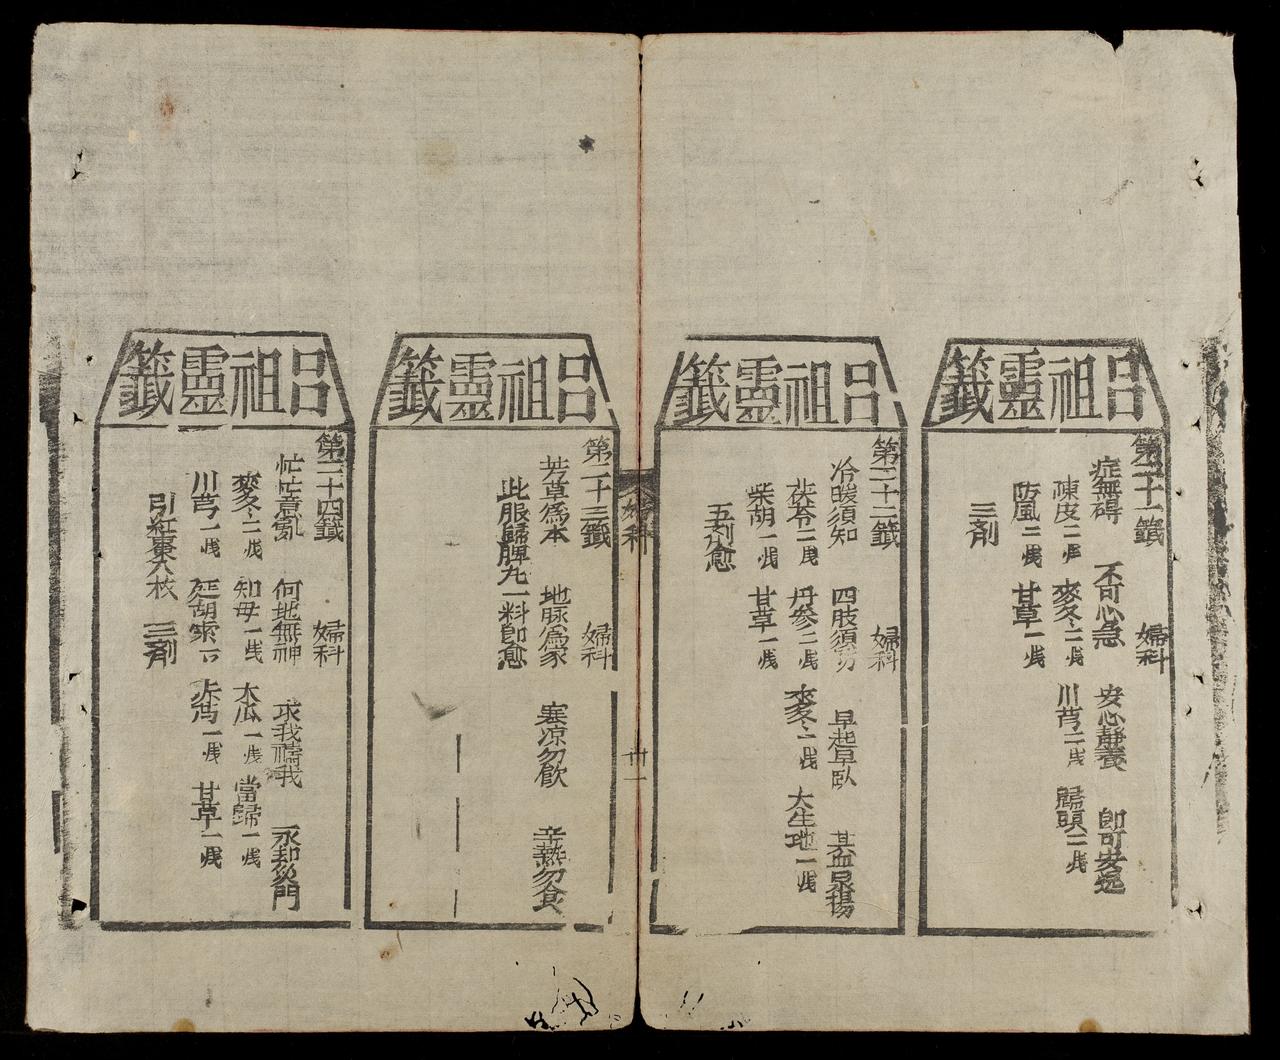 呂祖靈籤
第二十一籤 婦科
症無碍 不可心急 安心靜養 即可安逸
陳皮二戋 麥冬二戋 川芎二戋 歸頭二戋
防風二戋 甘草一戋
三劑
呂祖靈籤
第二十二籤 婦科
冷暖須知 四肢須 早起早臥 其血
茯苓二戋 丹參二戋 麥冬二戋 大生地一戋
柴胡一戋 甘草一戋
五剂愈
婦科
卅一
呂祖靈籤
第二十三籤 婦科
芳草為本 地脉為家 寒凉勿飲 辛熱勿食
此服歸脾丸一料即愈
呂祖靈籤
第二十四籤 婦科
忙忙意亂 何地無神 求我禱我 永却災門
麥冬二戋 知母一戋 木瓜一戋 當歸一戋
川芎一戋 延胡索 一戋 甘草一戋
引紅棗六枚 三劑